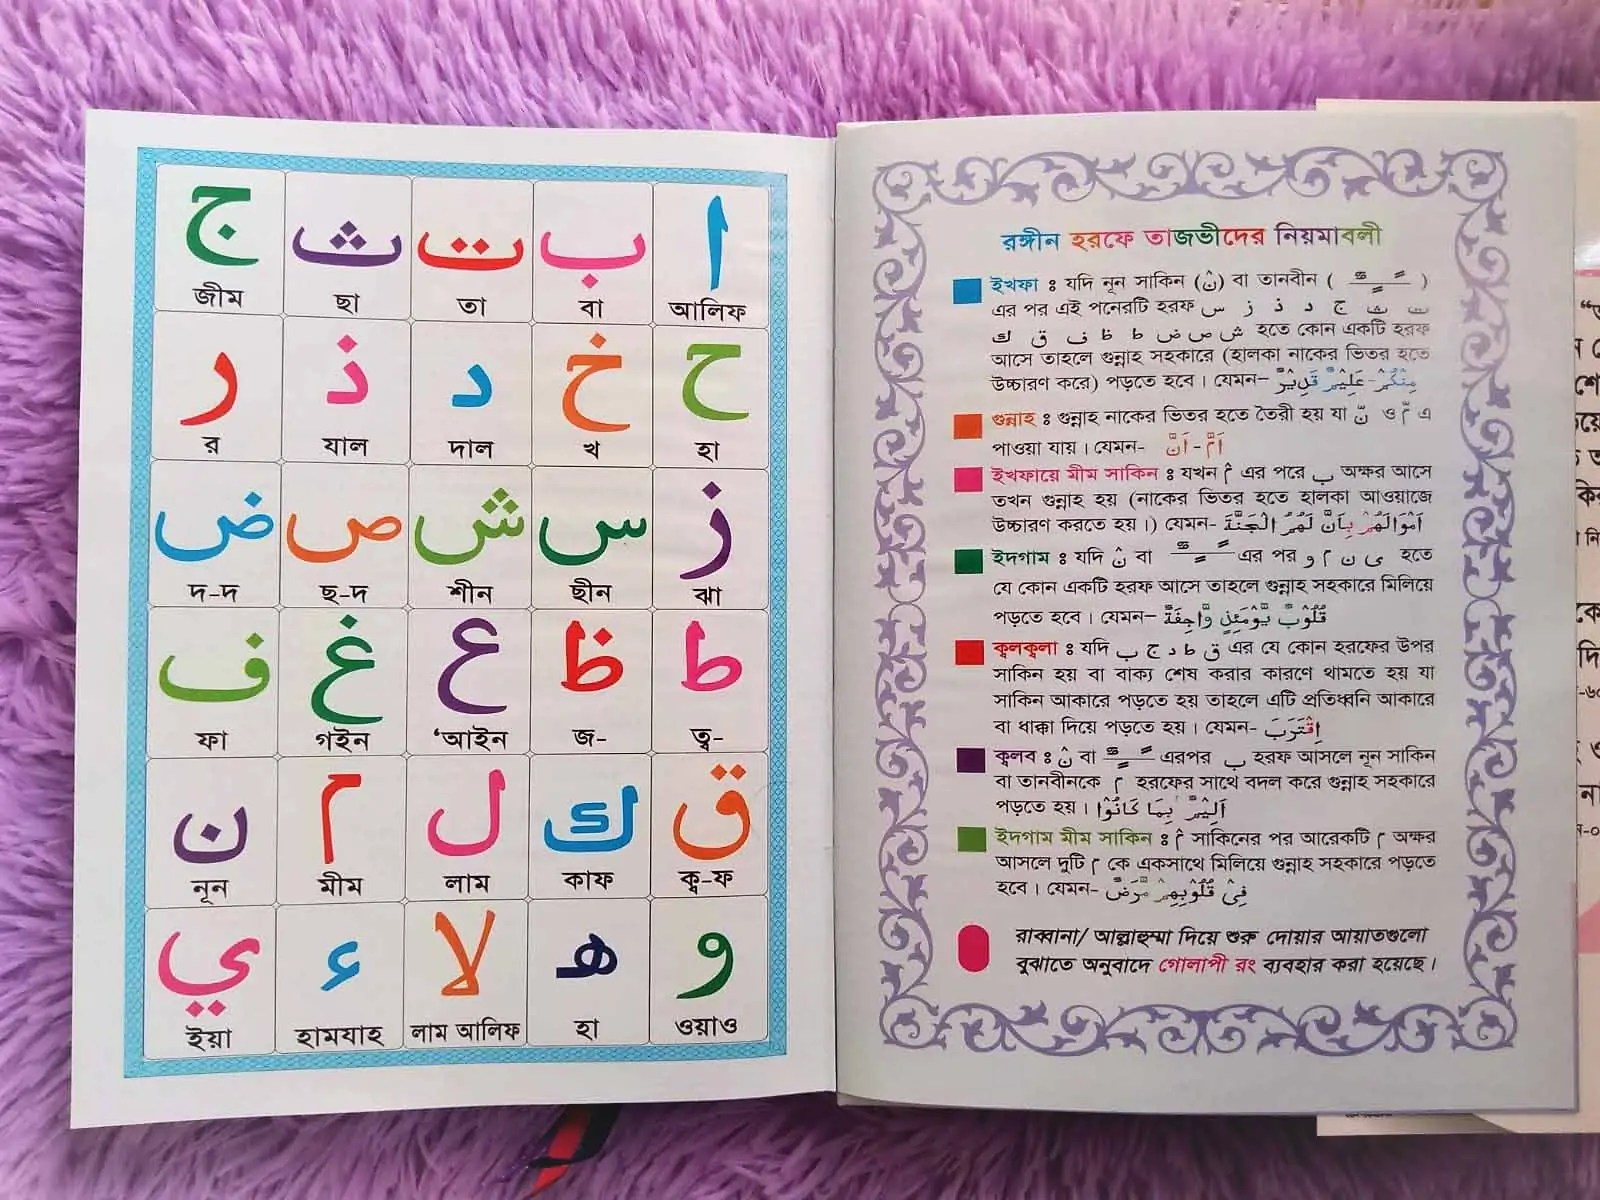 ج ث ت ب ا
জীম ছা তা বা আলিফ
ر ذ د خ ح
র যাল দাল খ হা
ض ص ش س ز
দ-দ ছ-দ শীন ছীন ঝা
ف غ ع ظ ط
ফা গইন ‘আইন জ- ত্ব-
ن م ل ك ق
নূন মীম লাম কাফ ক্ব-ফ
ي ء لا ه و
ইয়া হামযাহ লাম আলিফ হা ওয়াও
রঙ্গীন হরফে তাজভীদের নিয়মাবলী
ইখফা ঃ যদি নূন সাকিন (نْ) বা তানবীন ( ـًـٍـٌ )
এর পর এই পনেরটি হরফ ت ث ج د ذ ز س
ش ص ض ط ظ ف ق ك হতে কোন একটি হরফ
আসে তাহলে গুন্নাহ সহকারে (হালকা নাকের ভিতর হতে
উচ্চারণ করে) পড়তে হবে। যেমন- مِنْكُمْ - عَلِيْمٌ قَدِيْرٌ
গুন্নাহ ঃ গুন্নাহ নাকের ভিতর হতে তৈরী হয় যা نّ ও مّ এ
পাওয়া যায়। যেমন- اَمَّ - اَنَّ
ইখফায়ে মীম সাকিন ঃ যখন مْ এর পরে ب অক্ষর আসে
তখন গুন্নাহ হয় (নাকের ভিতর হতে হালকা আওয়াজে
উচ্চারণ করতে হয়।) যেমন- اَمْوَالَهُمْ بِاَنَّ لَهُمُ الْجَنَّةَ
ইদগাম ঃ যদি نْ বা ـًـٍـٌ এর পর ى ن م و হতে
যে কোন একটি হরফ আসে তাহলে গুন্নাহ সহকারে মিলিয়ে
পড়তে হবে। যেমন- قُلُوْبٌ يَّوْمَئِذٍ وَّاجِفَةٌ
ক্বলক্বলা ঃ যদি ق ط د ج ب এর যে কোন হরফের উপর
সাকিন হয় বা বাক্য শেষ করার কারণে থামতে হয় যা
সাকিন আকারে পড়তে হয় তাহলে এটি প্রতিধ্বনি আকারে
বা ধাক্কা দিয়ে পড়তে হয়। যেমন- اِقْتَرَبَ
ক্বলব ঃ نْ বা ـًـٍـٌ এরপর ب হরফ আসলে নূন সাকিন
বা তানবীনকে م হরফের সাথে বদল করে গুন্নাহ সহকারে
পড়তে হয়। اَلِيْمٌ بِمَا كَانُوْا
ইদগাম মীম সাকিন ঃ مْ সাকিনের পর আরেকটি م অক্ষর
আসলে দুটি م কে একসাথে মিলিয়ে গুন্নাহ সহকারে পড়তে
হবে। যেমন- فِىْ قُلُوْبِهِمْ مَّرَضٌ
রাব্বানা/ আল্লাহুম্মা দিয়ে শুরু দোয়ার আয়াতগুলো
বুঝাতে অনুবাদে গোলাপী রং ব্যবহার করা হয়েছে।